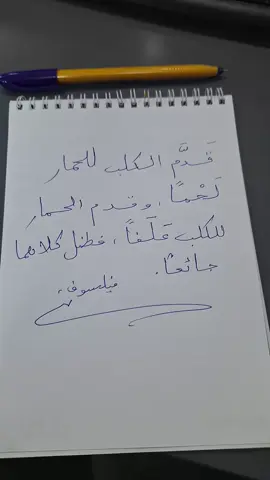 قَدَّم الكلب للحمار
لَحْمًا، وقدم الحمار
للكلب عَلَفاً، فظل كلاهما
جائعًا.
فيلسوفة